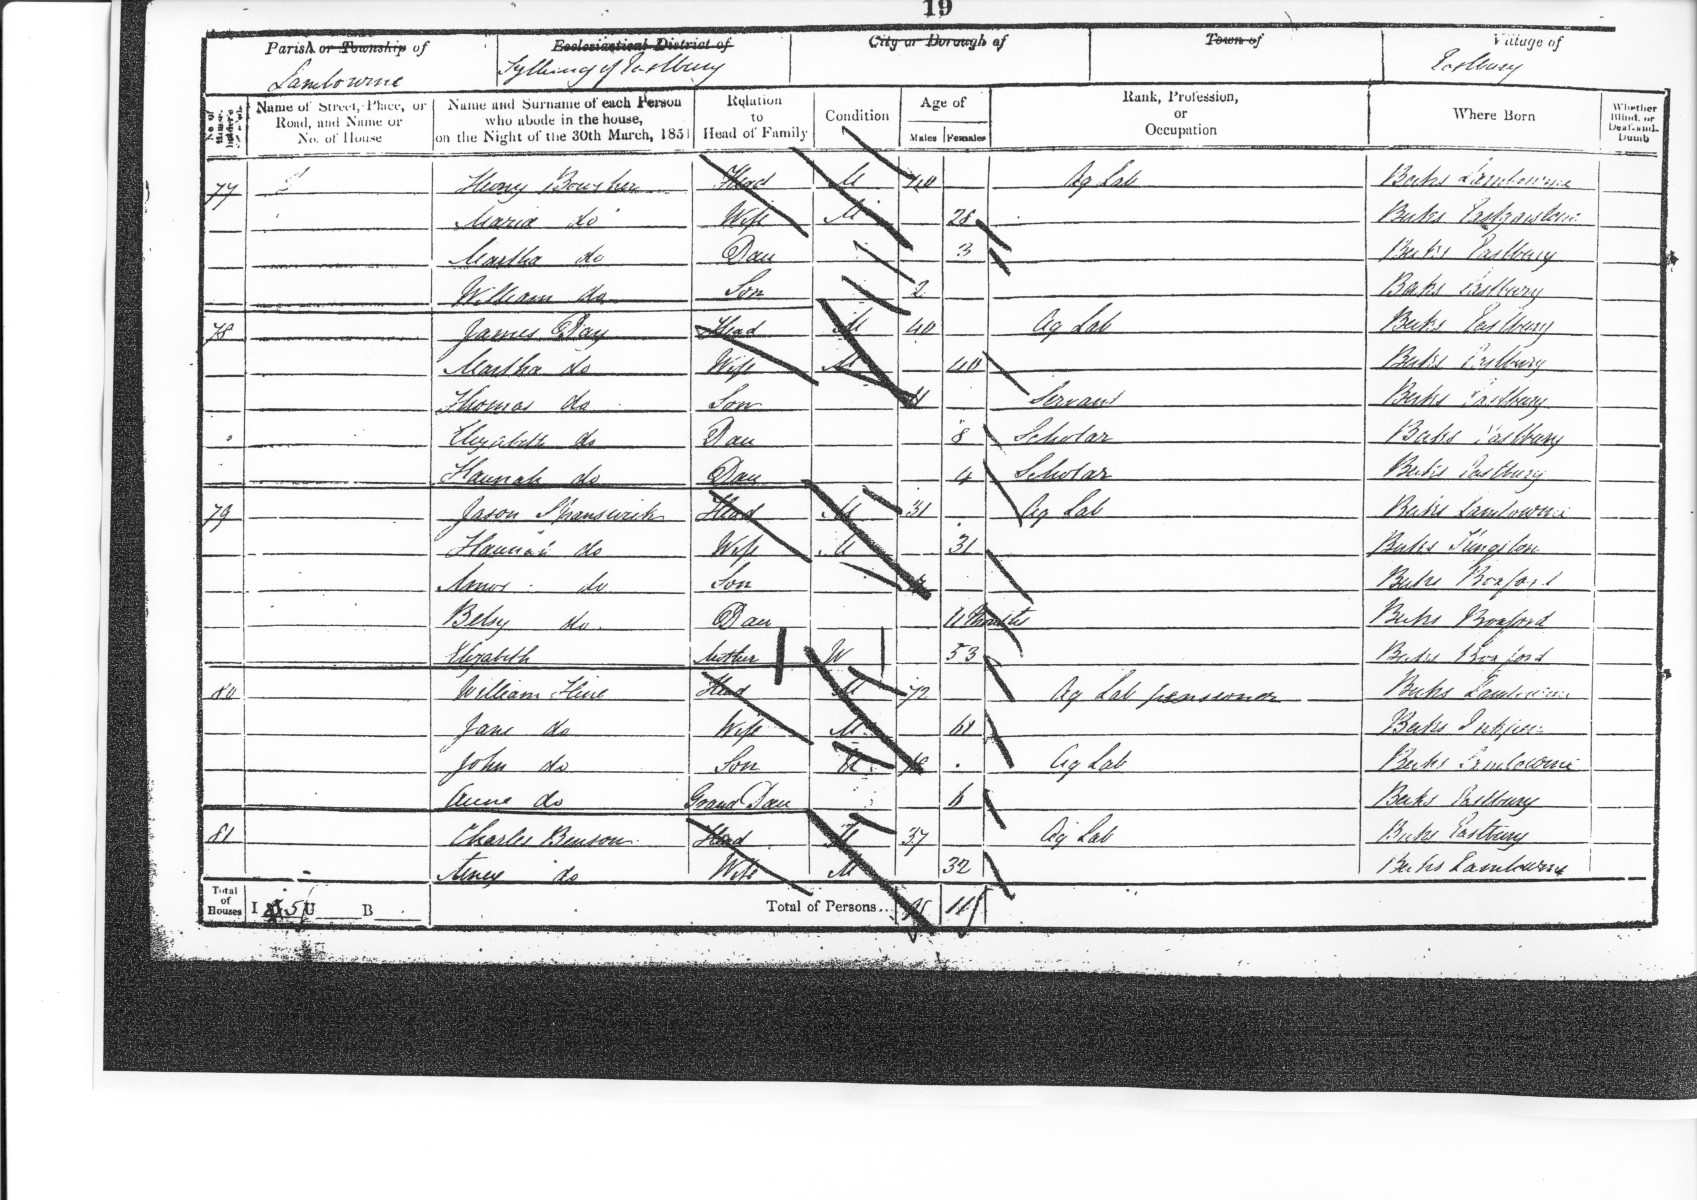 19
Parish or Township of Ecclesiastical District of City or Borough of Town of Village of
Lambourne Tything of Eastbury Eastbury
No. of House-holder's Name of Street, Place, or Road, and Name or No. of House Name and Surname of each Person who abode in the house, on the Night of the 30th March, 1851 Relation to Head of Family Condition Age of Males Females Rank, Profession, or Occupation Where Born Whether Blind, or Deaf-and-Dumb
77 Henry Bowsher Head M 40 Ag Lab Berks Lambourne
Maria do Wife M 28 Berks
Martha do Dau 3 Berks Eastbury
William do Son 2 Berks Eastbury
78 James Day Head M 40 Ag Lab Berks Eastbury
Martha do Wife M 40 Berks Eastbury
Thomas do Son 11 Servant Berks Eastbury
Elizabeth do Dau 8 Scholar Berks Eastbury
Hannah do Dau 4 Scholar Berks Eastbury
79 Jason Head M 31 Ag Lab Berks Lambourne
Hannah do Wife M 31 Berks Kingston
Amos do Son Berks Boxford
Betsy do Dau 11 Months Berks Boxford
Elizabeth Mother W 53 Berks Boxford
80 William Hine Head M 72 Ag Lab pensioner Berks Lambourne
Jane do Wife M 61 Berks Inkpen
John do Son U 18 Ag Lab Berks Lambourne
Anne do Grand Dau 6 Berks Eastbury
81 Charles Benson Head M 37 Ag Lab Berks Eastbury
do Wife M 32 Berks Lambourne
Total of Houses I 5 U B Total of Persons... 9 11